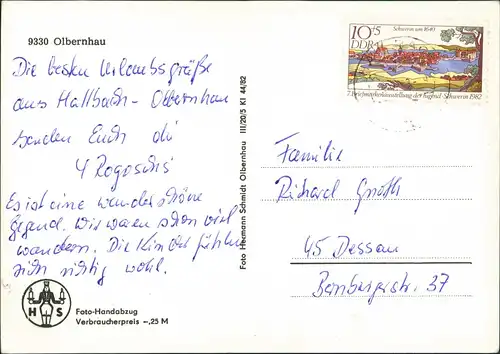 9330 Olbernhau
Die besten Urlaubsgrüße
aus Hallbach - Olbernhau
senden Euch die
4 Rogoschs
Es ist eine wunderschöne
Gegend. Wir waren schon viel
wandern. Die Kinder fühlen
sich richtig wohl.
H S
Foto-Handabzug
Verbraucherpreis -,25 M
Foto Hermann Schmidt Olbernhau III/20/5 Kl 44/82
10+5
DDR
Schwerin um 1640
7. Briefmarkenausstellung der Jugend · Schwerin 1982
Familie
Richard
45 Dessau
Bernburgerstr. 37